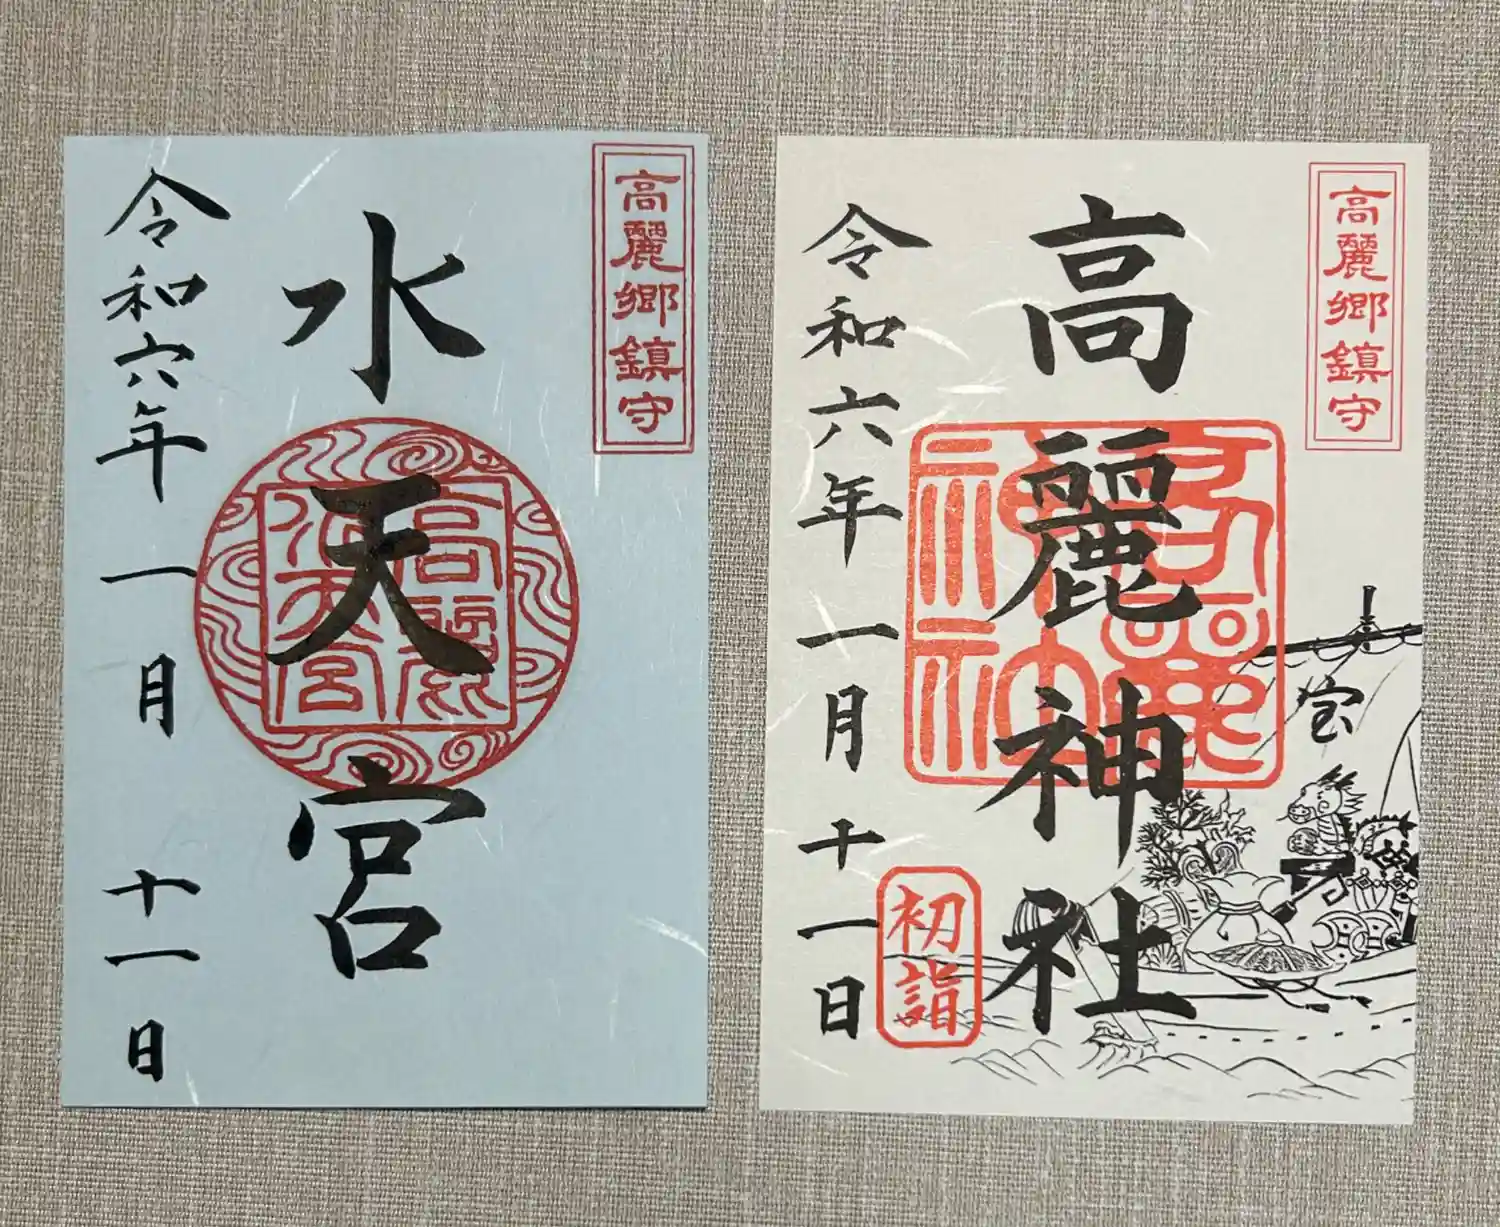 高麗郷鎮守
水天宮
高麗水天宮
令和六年一月十一日
高麗郷鎮守
高麗神社
高麗神社
宝
初詣
令和六年一月十一日